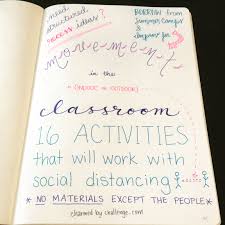 need structured
recess ideas?
BORROW from
summer camps
&
improv for
movement
in the
(INDOOR or OUTDOOR)
classroom
16 ACTIVITIES
that will work with
social distancing
* NO MATERIALS EXCEPT THE PEOPLE *
charmed by challenge.com